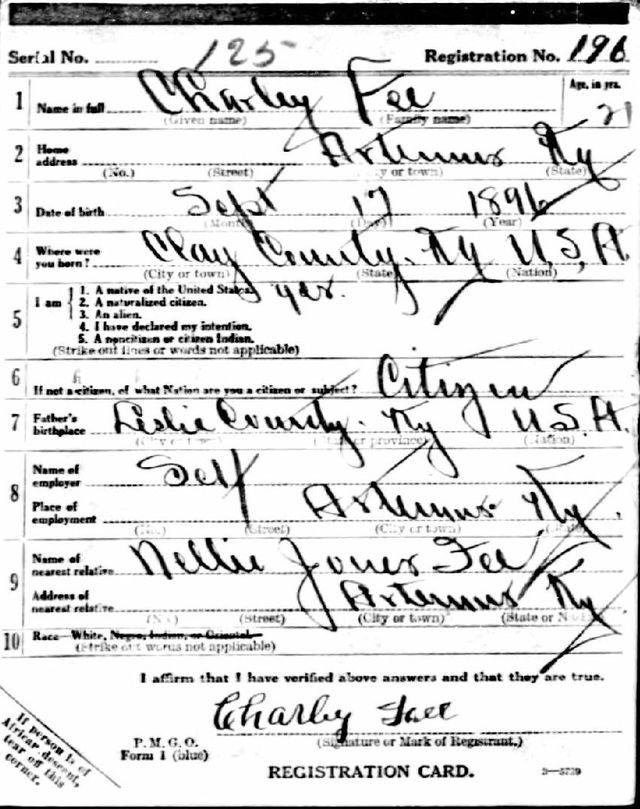 Serial No. 125 Registration No. 196
1 Name in full Charley Fee Age, in yrs.
(Given name) (Family name) 21
2 Home address Artemus Ky
(No.) (Street) (City or town) (State)
3 Date of birth Sept 17 1896
(Month) (Day) (Year)
4 Where were you born? Clay County. Ky U.S.A.
(City or town) (State) (Nation)
5 I am
1. A native of the United States yes.
2. A naturalized citizen.
3. An alien.
4. I have declared my intention.
5. A noncitizen or citizen Indian.
(Strike out lines or words not applicable)
6 If not a citizen, of what Nation are you a citizen or subject? Citizen
7 Father's birthplace Leslie County. Ky U.S.A.
(City or town) (State or province) (Nation)
8 Name of employer Self
Place of employment Artemus Ky.
(No.) (Street) (City or town) (State)
9 Name of nearest relative Nellie Jones Fee
Address of nearest relative Artemus Ky
(No.) (Street) (City or town) (State or Nation)
10 Race—White, Negro, Indian, or Oriental
(Strike out words not applicable)
I affirm that I have verified above answers and that they are true.
Charley Fee
P. M. G. O. (Signature or Mark of Registrant.)
Form 1 (blue)
REGISTRATION CARD. 3—5739
If person is of
African descent,
tear off this
corner.